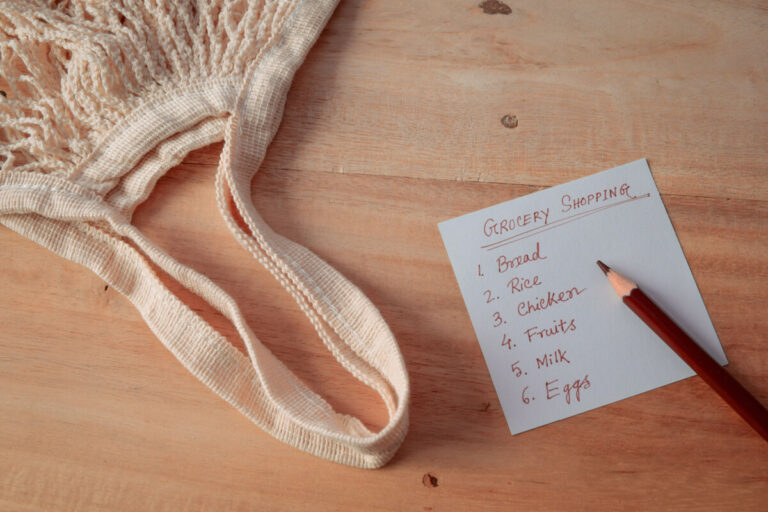 GROCERY SHOPPING
1. Bread
2. Rice
3. Chicken
4. Fruits
5. Milk
6. Eggs